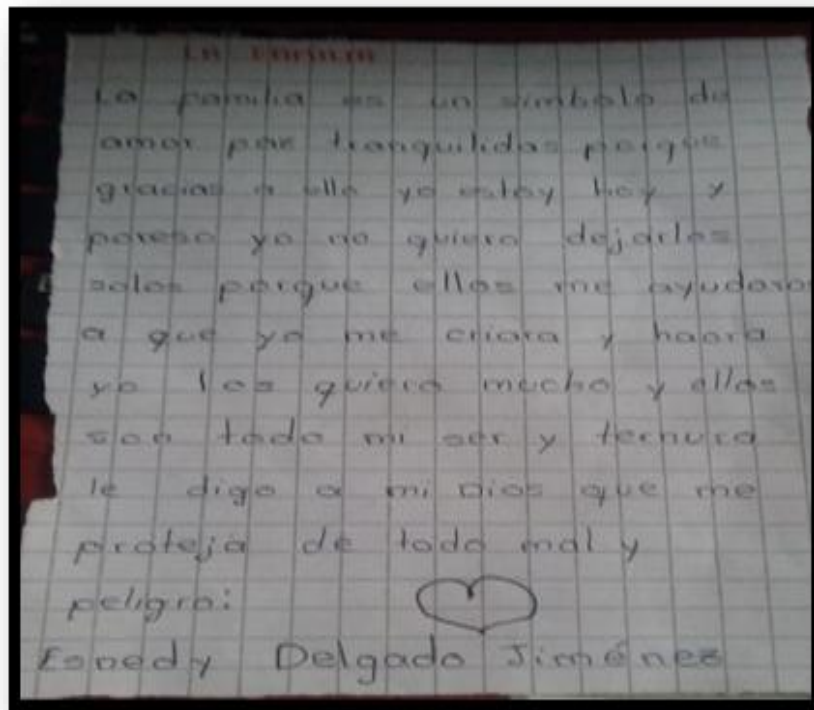 La familia
La familia es un simbolo de
amor paz tranquilidad porque
gracias a ella yo estoy hoy y
poreso yo no quiero dejarlos
solos porque ellos me ayudaron
a que yo me criara y haora
yo los quiero mucho y ellos
son todo mi ser y ternura
le digo a mi Dios que me
proteja de todo mal y
peligro:
Delgado Jiménez